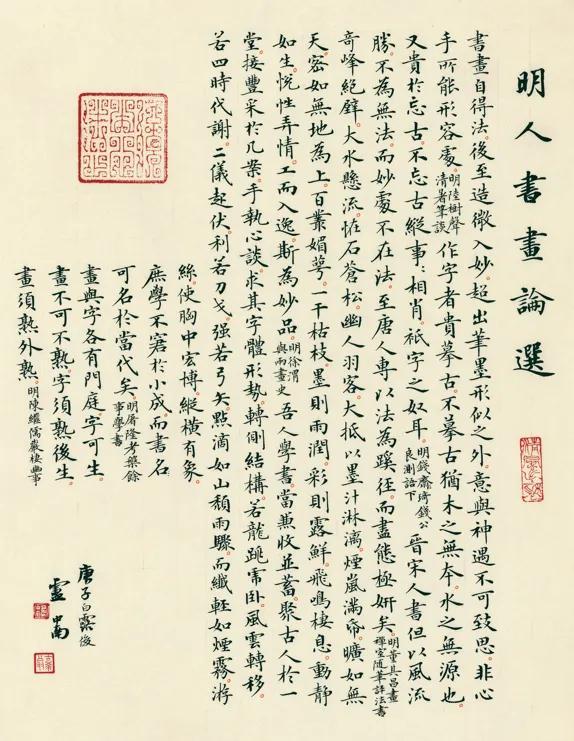 明人書畫論選
書畫自得法後至造微入妙超出筆墨形似之外意與神遇不可致思非心
手所能形容處明陸樹聲清暑筆談作字者貴摹古不摹古猶木之無本水之無源也
又貴於忘古不忘古縱事〻相肖祇字之奴耳明錢齋琦錢公良測語下晉宋人書但以風流
勝不為無法而妙處不在法至唐人專以法為蹊徑而盡態極妍矣明董其昌畫禪室隨筆評法書
奇峰絕壁大水懸流怪石蒼松幽人羽客大抵以墨汁淋漓煙嵐滿帋曠如無
天密如無地為上百叢媚萼一干枯枝墨則雨潤彩則露鮮飛鳴棲息動靜
如生悅性弄情工而入逸斯為妙品明徐渭與兩畫史吾人學書當兼收並蓄聚古人於一
堂接豐采於几案手執心談求其字體形勢轉側結構若龍跳虎臥風雲轉移
若四時代謝二儀起伏利若刀戈强若弓矢點滴如山頹雨驟而纖輕如煙霧游
絲使胸中宏博縱橫有象
庶學不窘於小成而書名
可名於當代矣明屠隆考槃餘事學書
畫與字各有門庭字可生
畫不可不熟字須熟後生
畫須熟外熟明陳繼儒巖棲幽事
庚子白露後